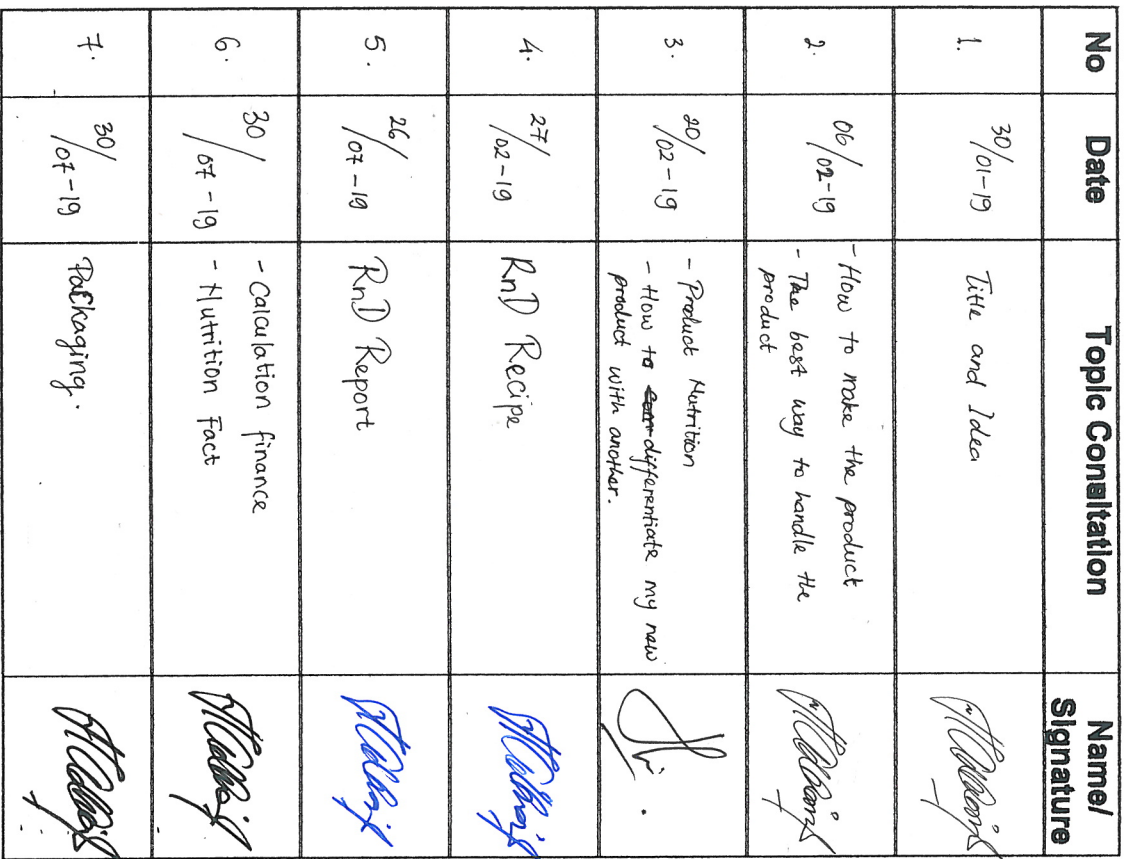 No Date Topic Consultation Name/
Signature
1. 30/01-19 Title and Idea
2. 06/02-19 - How to make the product
- The best way to handle the
product
3. 20/02-19 - Product Nutrition
- How to differentiate my new
product with another.
4. 27/02-19 RnD Recipe
5. 26/07-19 RnD Report
6. 30/07-19 - Calculation finance
- Nutrition Fact
7. 30/07-19 Packaging.